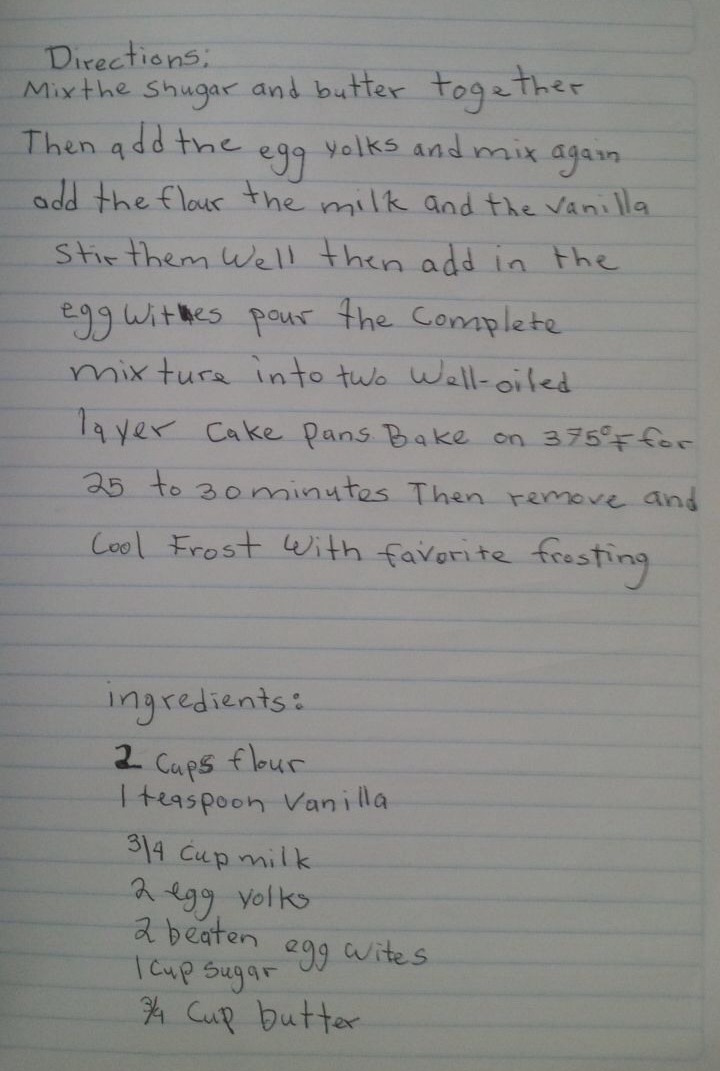 Directions:
Mix the shugar and butter together
Then add the egg yolks and mix again
add the flour the milk and the vanilla
stir them well then add in the
egg wites pour the complete
mixture into two well-oiled
layer cake pans. Bake on 375°F for
25 to 30 minutes Then remove and
Cool Frost with favorite frosting
ingredients:
2 cups flour
1 teaspoon vanilla
3/4 cup milk
2 egg yolks
2 beaten egg wites
1 cup sugar
3/4 cup butter